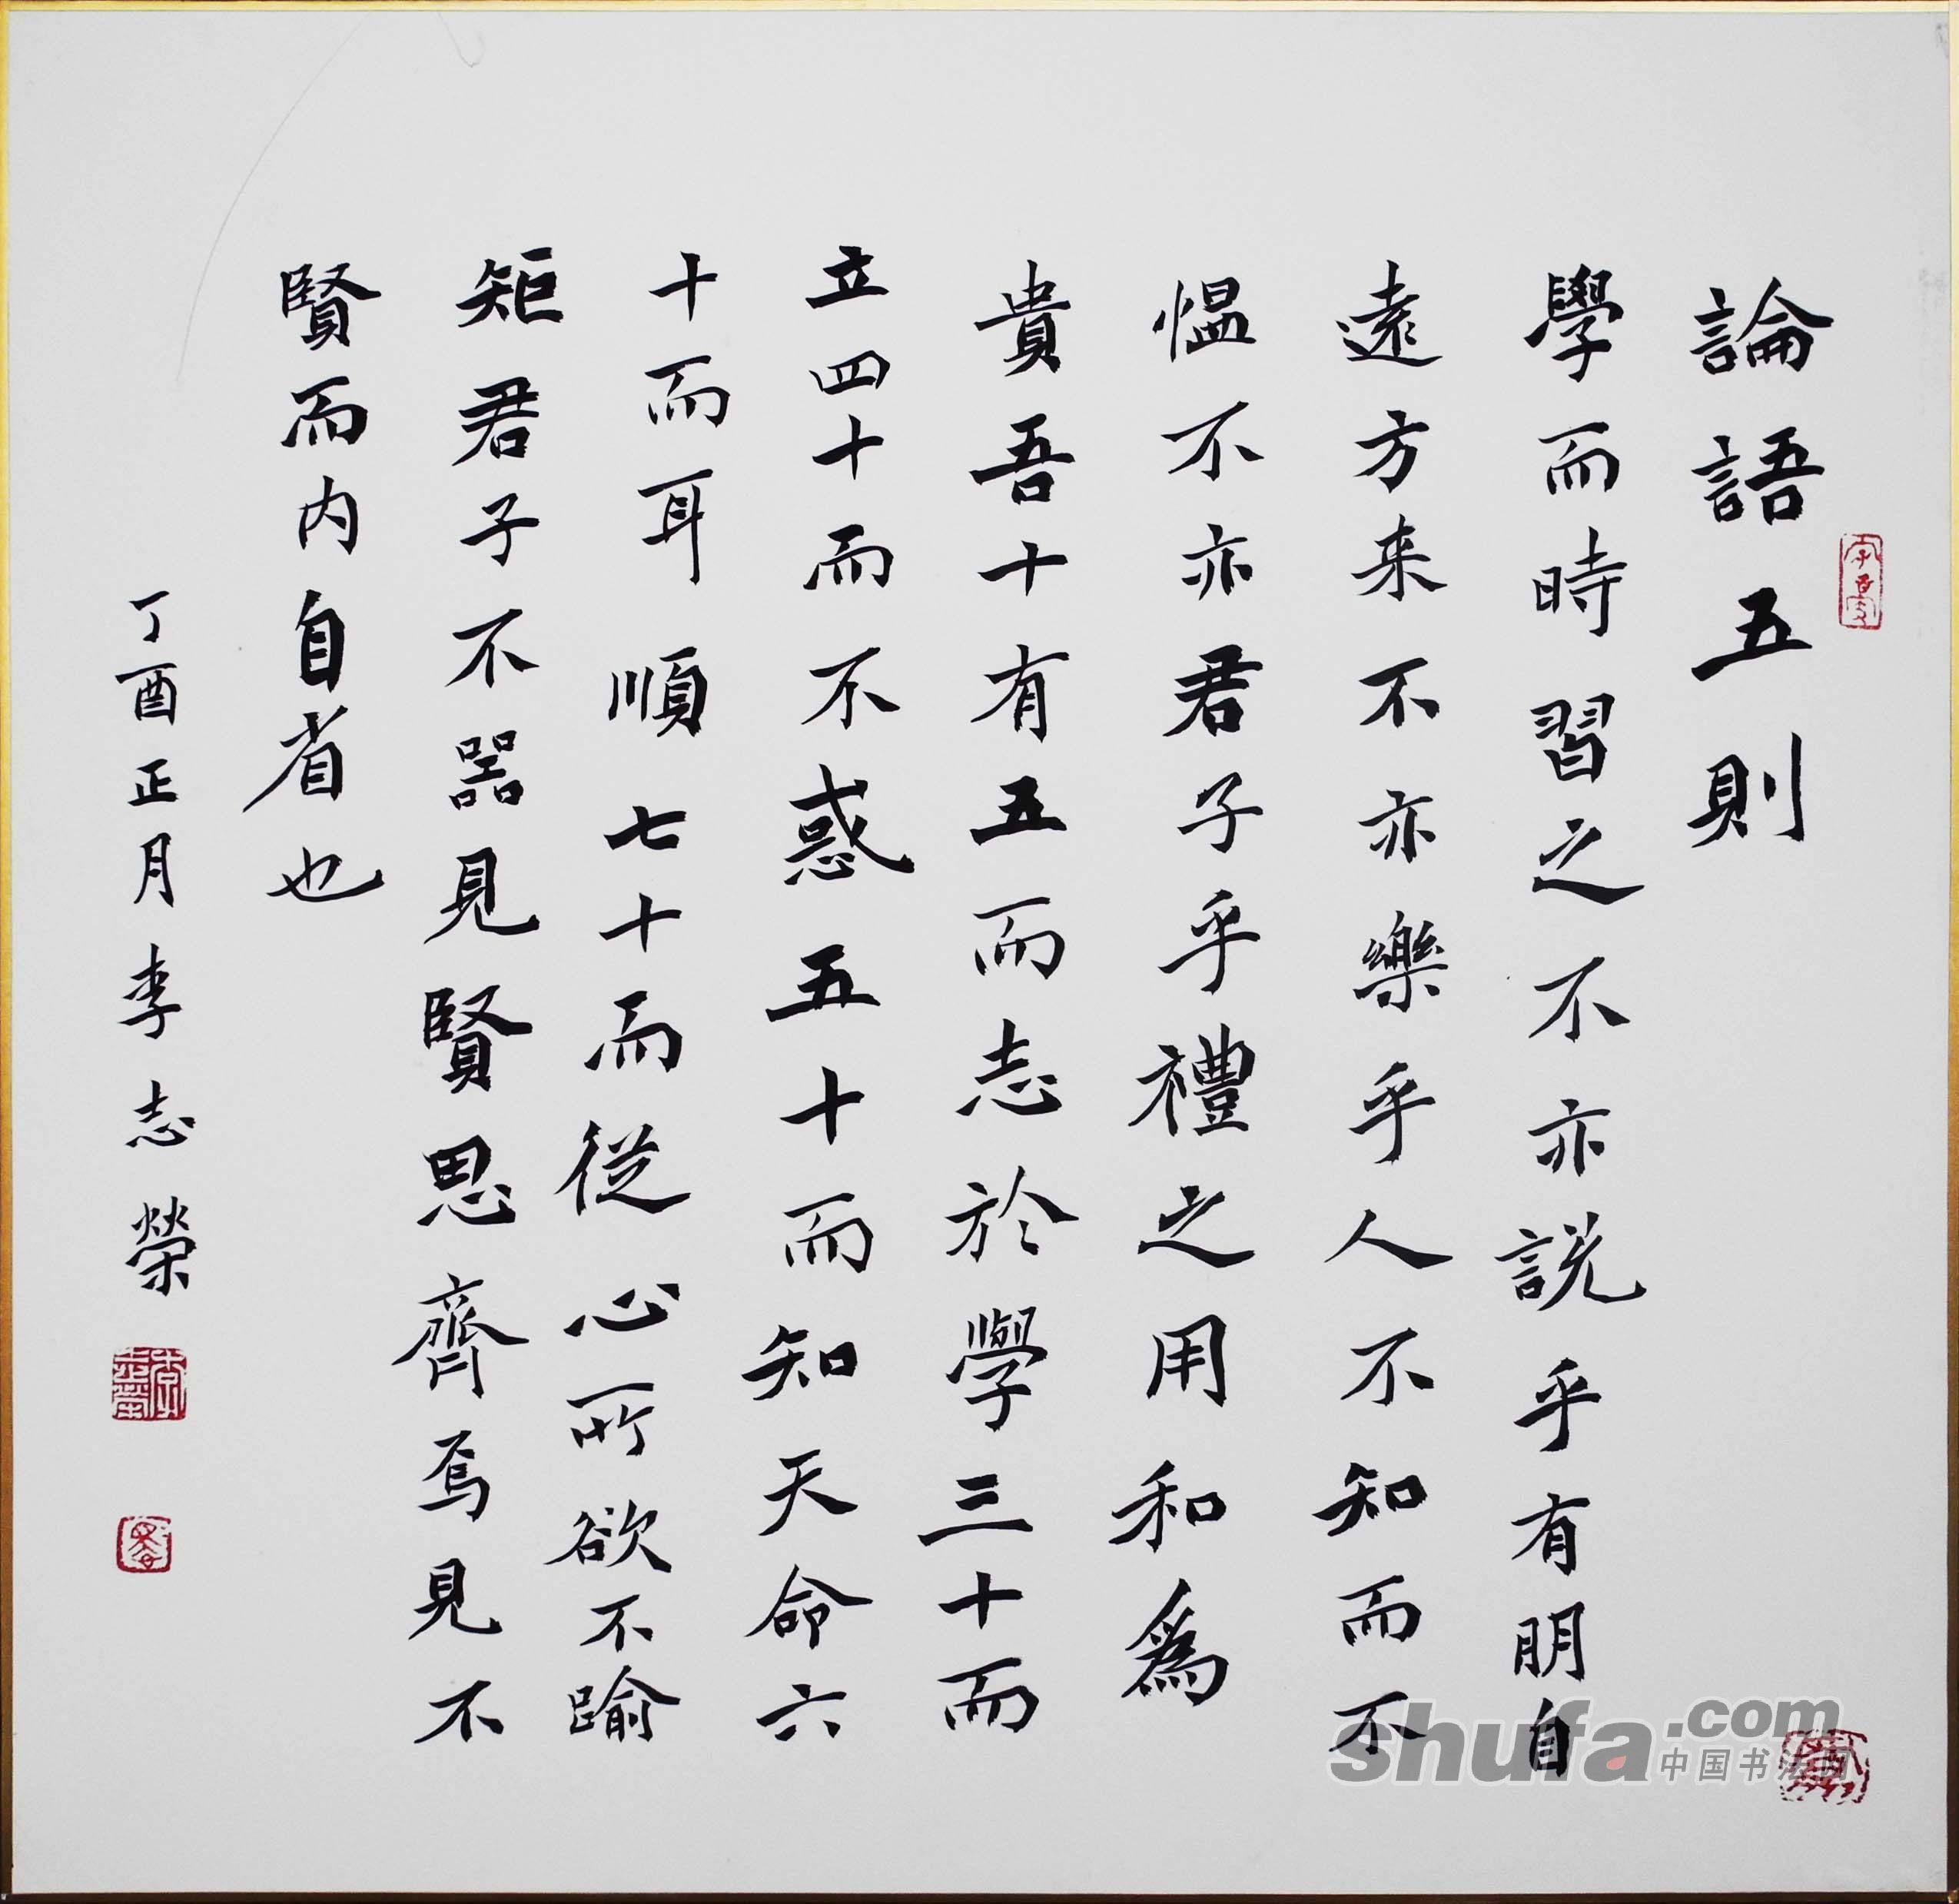 論語五則
學而時習之不亦説乎有朋自
遠方来不亦樂乎人不知而不
愠不亦君子乎禮之用和爲
貴吾十有五而志於學三十而
立四十而不惑五十而知天命六
十而耳順七十而從心所欲不踰
矩君子不器見賢思齊焉見不
賢而内自省也
丁酉正月李志榮
shufa.com
中国书法网